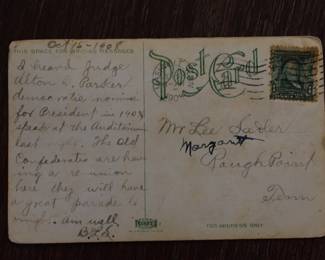 THIS SPACE FOR WRITING MESSAGES
Oct 16-1908
I heard Judge
Alton B. Parker
democratic nominee
for President in 1904
speak at the Auditorium
last night. The Old
Confederates are hav
ing a re union
here they will have
a great parade to
night. Am well
B.L.S.
Post Card
Mr Lee Sadler
Margarett
Rough Point
Tenn
FOR ADDRESS ONLY